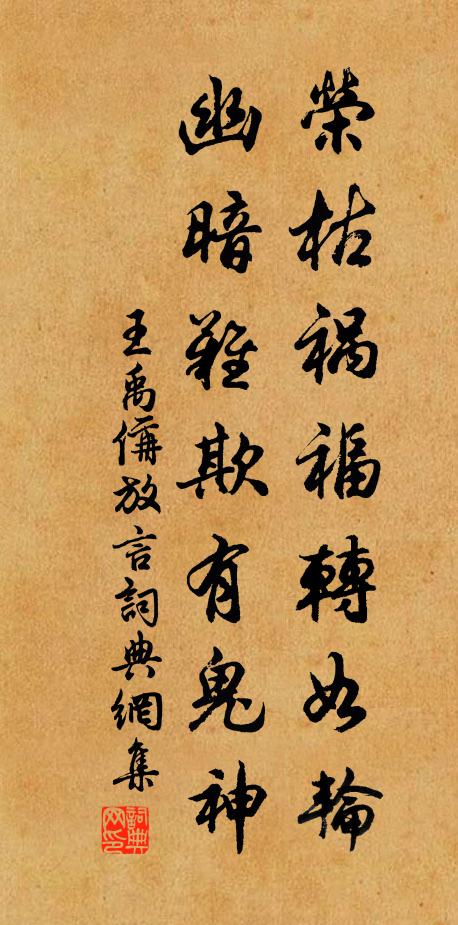 榮枯禍福轉如輪
幽暗難欺有鬼神
王禹偁放言詞典網集
詞典网印